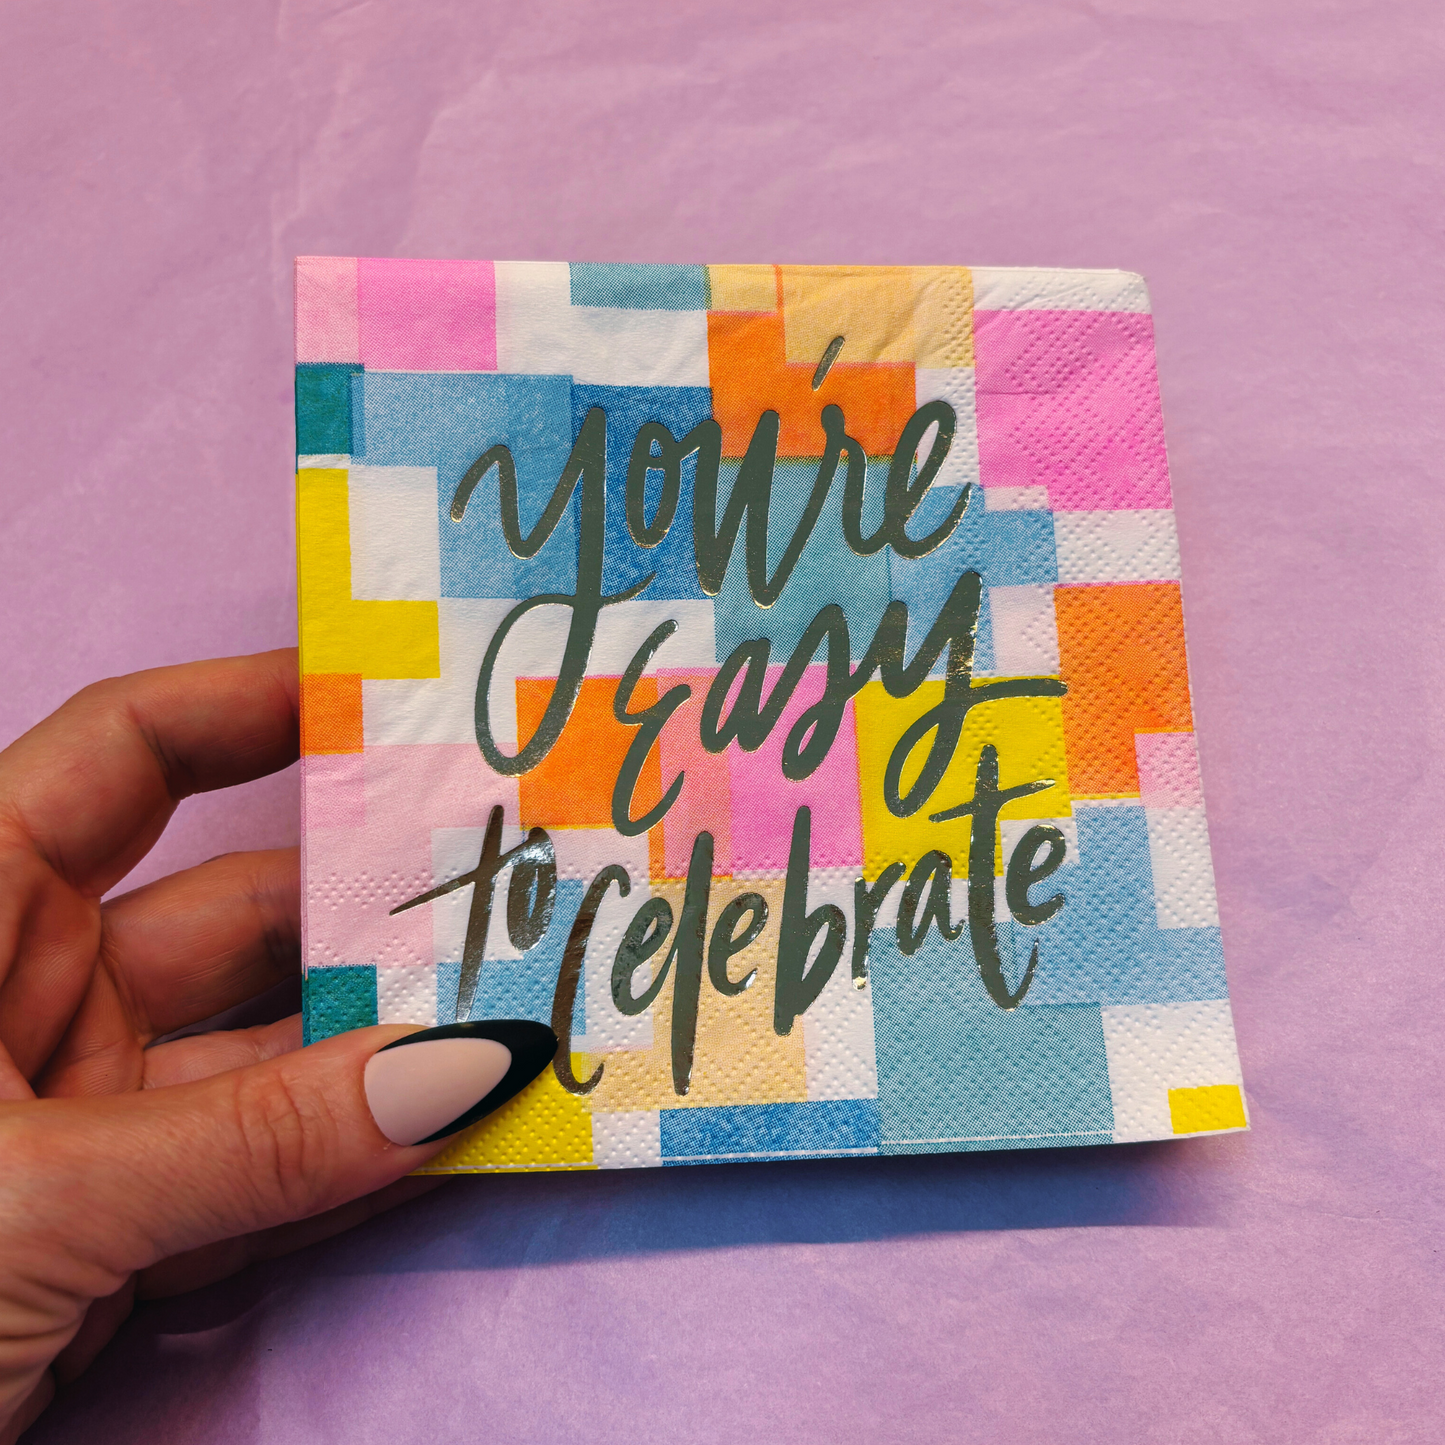 you're
Easy
to Celebrate